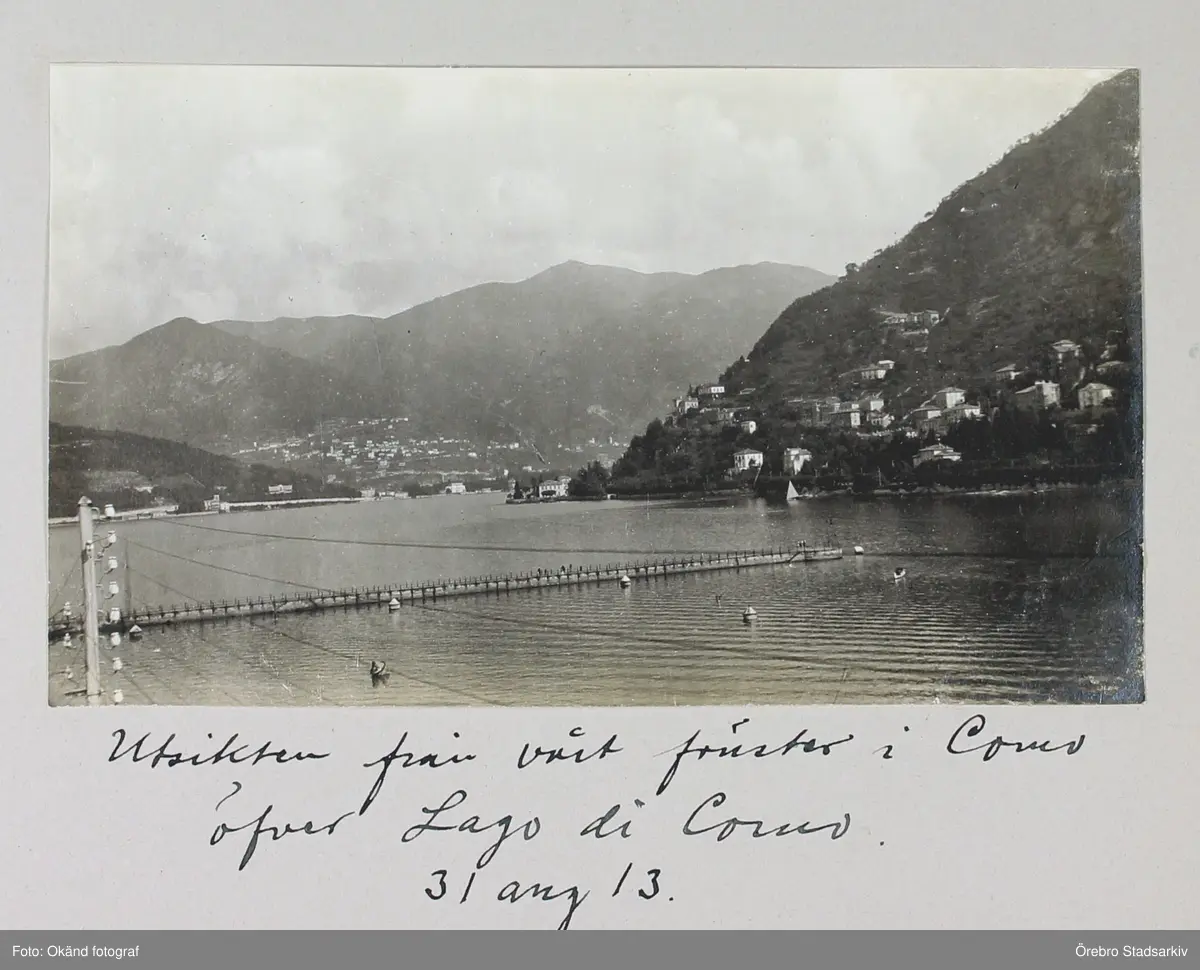 Utsikten från vårt fönster i Como
öfver Lago di Como.
31 aug 13.
Foto: Okänd fotograf
Örebro Stadsarkiv